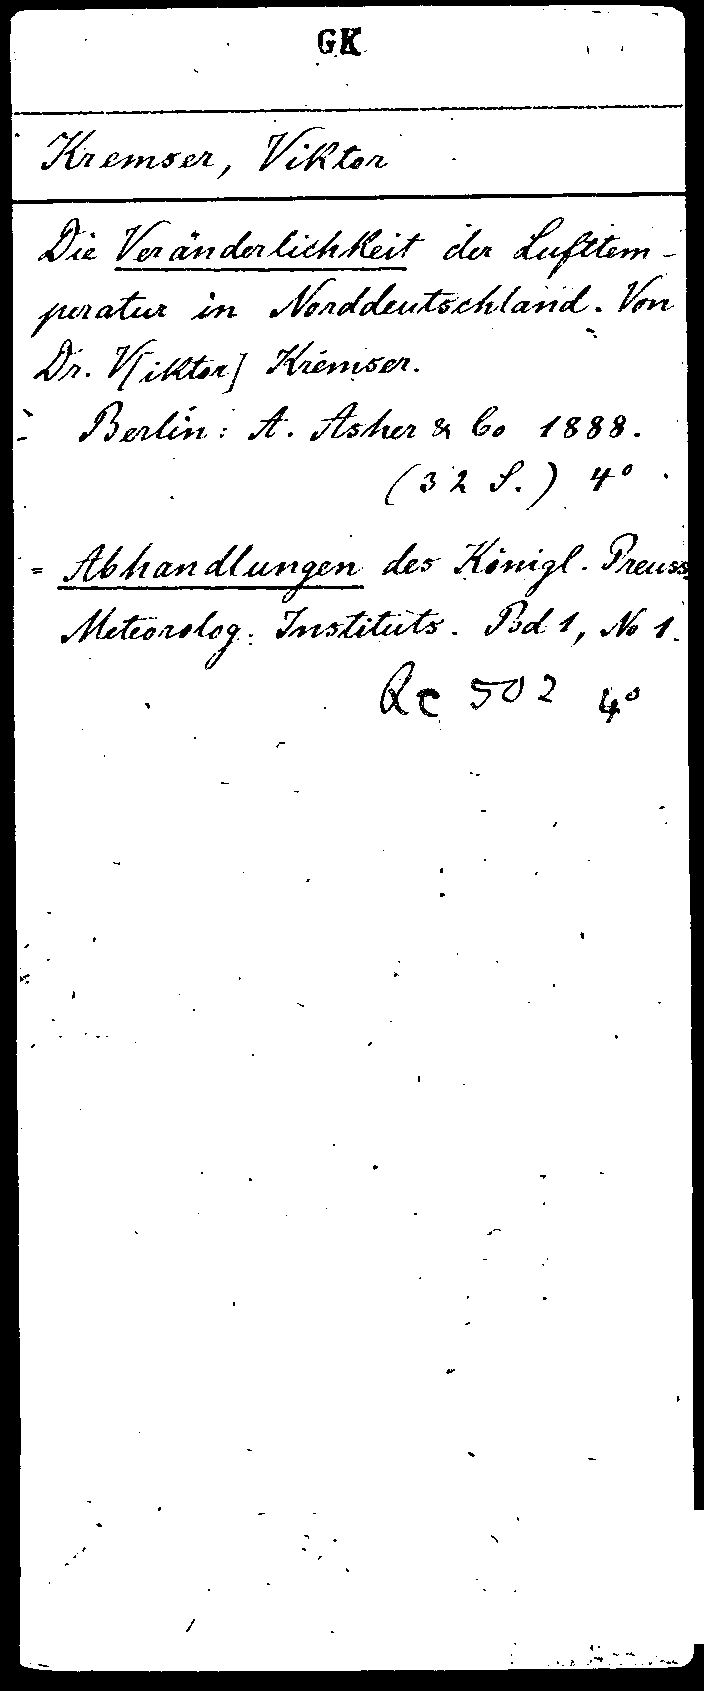 GK
Kremser, Viktor
Die Veränderlichkeit der Lufttem-
peratur in Norddeutschland. Von
Dr. V[iktor] Kremser.
Berlin: A. Asher & Co 1888.
(32 S.) 4°
= Abhandlungen des Königl. Preuss.
Meteorolog. Instituts. Bd 1, No 1.
Qe 502 4°